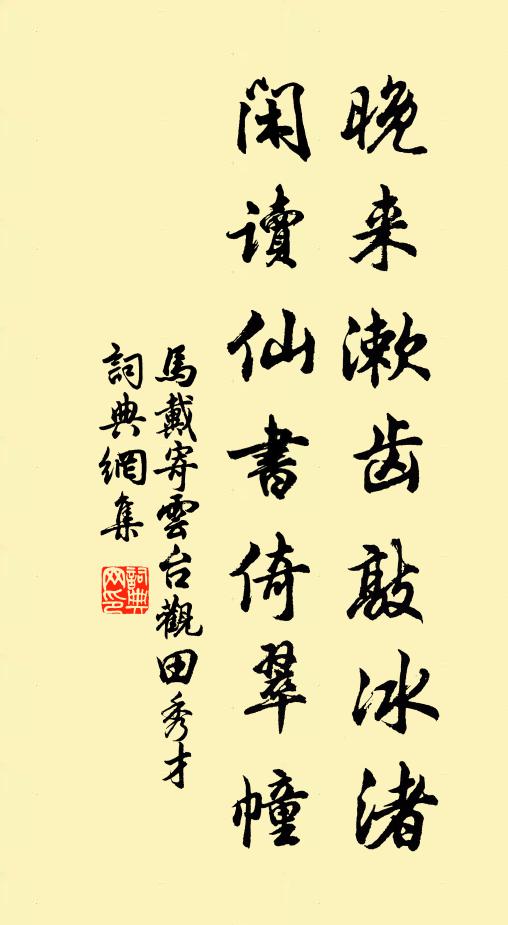 晚来漱齿敲冰渚
闲读仙書倚翠幢
馬戴寄雲台觀田秀才
詞典網集
詞典网印